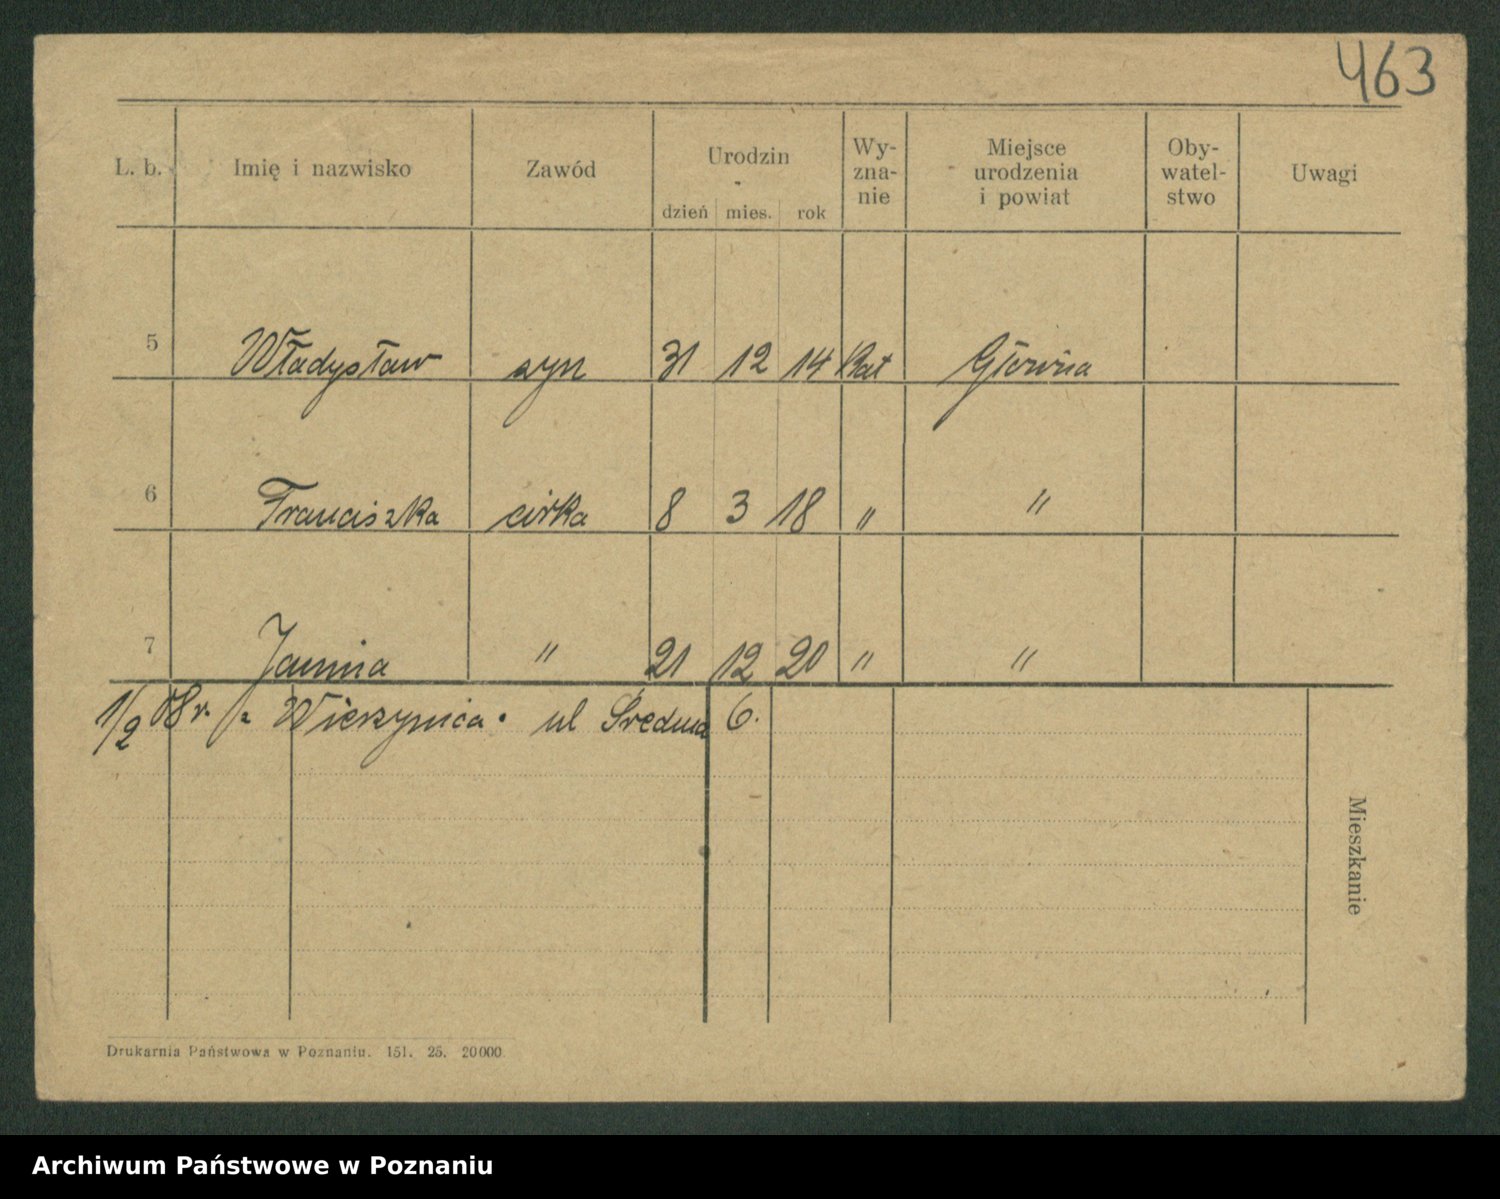 463
L. b. Imię i nazwisko Zawód Urodzin dzień mies. rok Wy-zna-nie Miejsce urodzenia i powiat Oby-watel-stwo Uwagi
5 Władysław syn 31 12 14 Kat Główna
6 Franciszka córka 8 3 18 " "
7 Janina " 21 12 20 " "
1/2 08 r. z Wierzynica. ul Średnia 6.
Mieszkanie
Drukarnia Państwowa w Poznaniu. 151. 25. 20000.
Archiwum Państwowe w Poznaniu